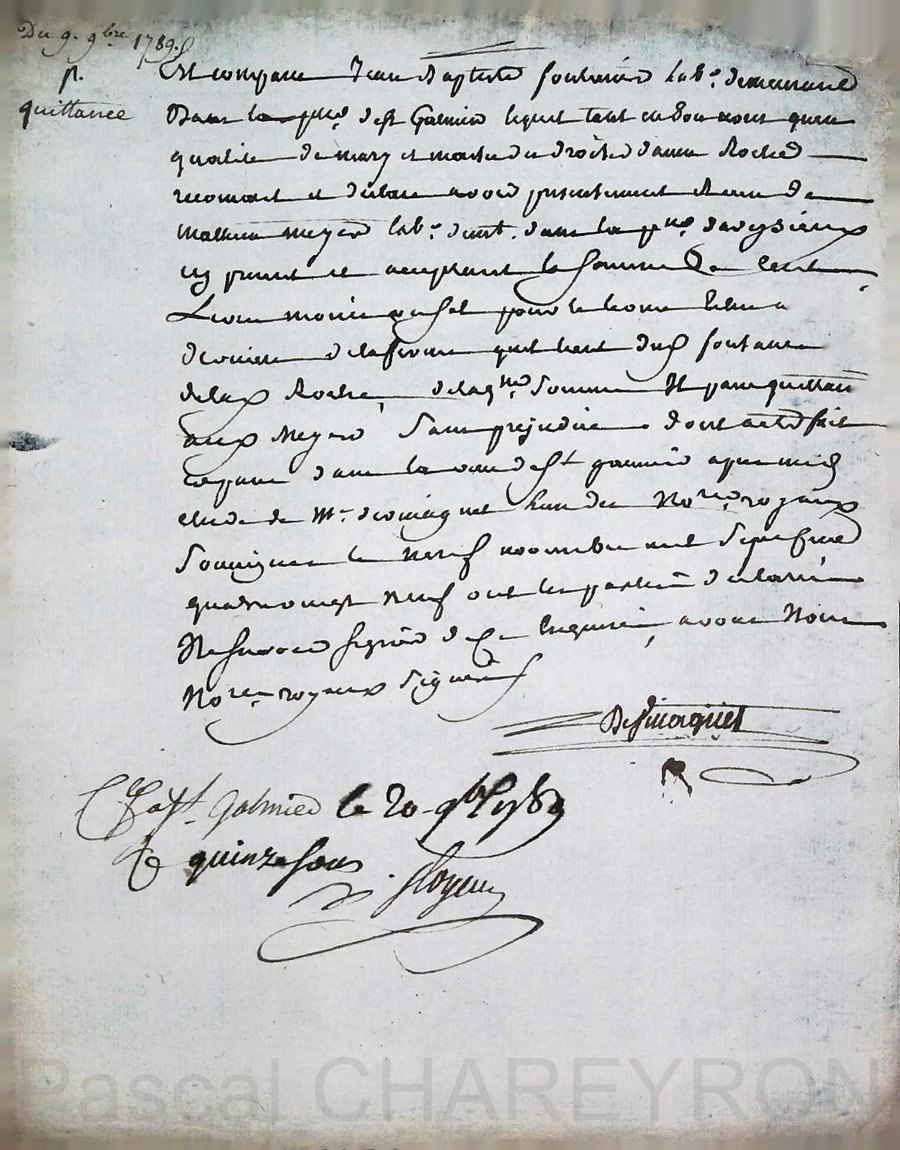 Du 9. 9bre 1789.
p.
quittance
Est comparu Jean Baptiste fontanier lab.r demeurant
Dans la pse. de st Galmier lequel tant en son nom qu'en
qualité de mary et maitre des droits d'anne Roche
reconoit et déclare avoir presentement Receu de
mathieu meyer lab.r demt. dans la pse. d'aveysieux
icy present et acceptant la somme De Cent
Livres monie
derniere de la ferme quil tient dud fontanier
de lad Roche, de laqlle somme Il passe quittance
aud Meyer sans prejudice dont acte fait
et passé dans la ville de st galmier apres midy
etude de Mr. desimaquet l'un des Notres royaux
soussignes le Neuf novembre mil sept cent
quatrevingt Neuf ont les parties déclarés
Ne savoir signer de ce Enquis, avons Nous
Notres royaux signés
Desimaquet
Ce a st. Galmier le 20 9bre 1789
quinze sous
Pascal CHAREYRON